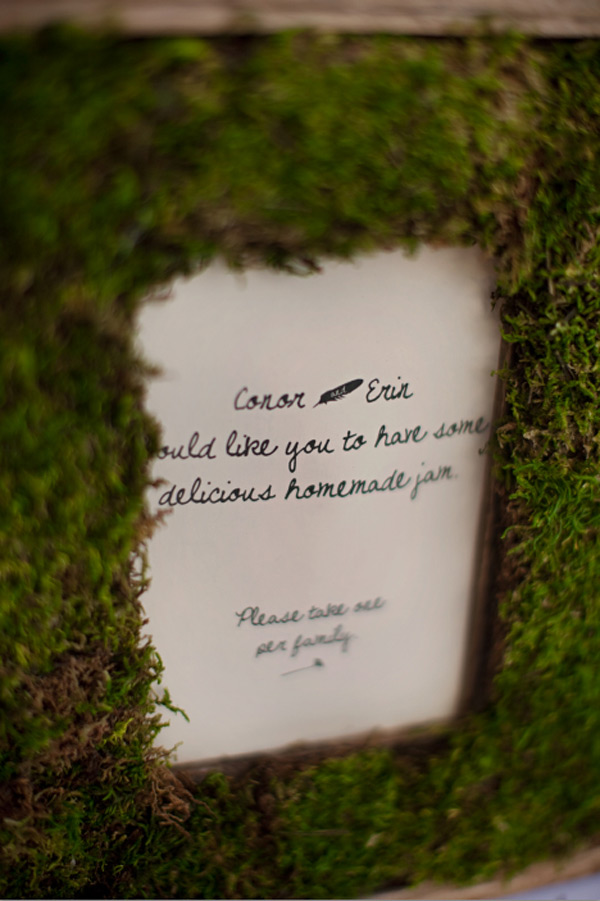 Conor and Erin
ould like you to have some
delicious homemade jam.
Please take one
per family.